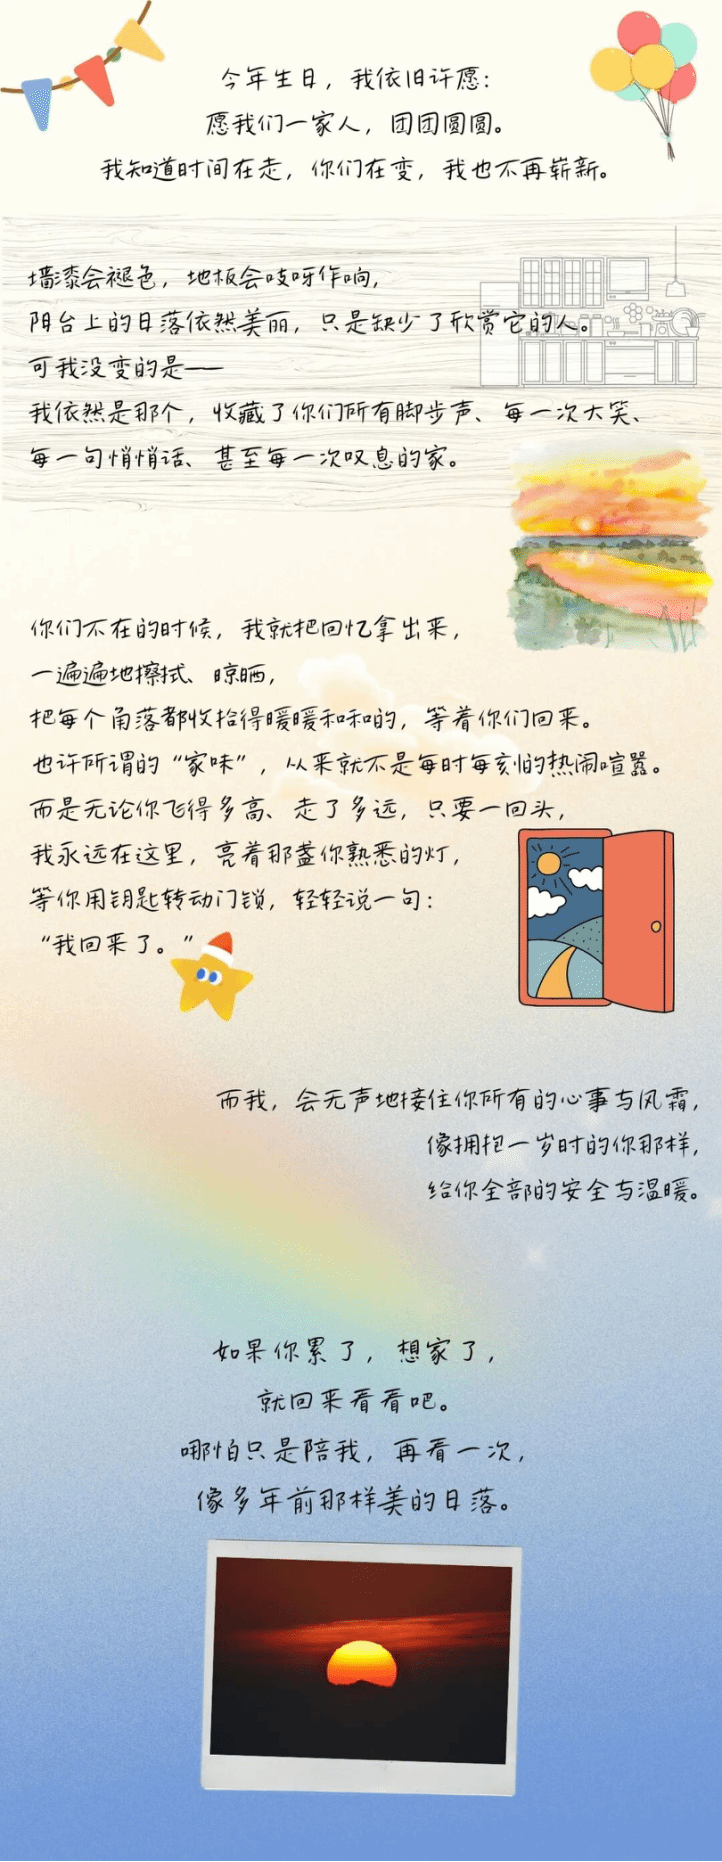 今年生日，我依旧许愿：
愿我们一家人，团团圆圆。
我知道时间在走，你们在变，我也不再崭新。
墙漆会褪色，地板会吱呀作响，
阳台上的日落依然美丽，只是缺少了欣赏它的人。
可我没变的是——
我依然是那个，收藏了你们所有脚步声、每一次大笑、
每一句悄悄话、甚至每一次叹息的家。
你们不在的时候，我就把回忆拿出来，
一遍遍地擦拭、晾晒，
把每个角落都收拾得暖暖和和的，等着你们回来。
也许所谓的“家味”，从来就不是每时每刻的热闹喧嚣。
而是无论你飞得多高、走了多远，只要一回头，
我永远在这里，亮着那盏你熟悉的灯，
等你用钥匙转动门锁，轻轻说一句：
“我回来了。”
而我，会无声地接住你所有的心事与风霜，
像拥抱一岁时的你那样，
给你全部的安全与温暖。
如果你累了，想家了，
就回来看看吧。
哪怕只是陪我，再看一次，
像多年前那样美的日落。